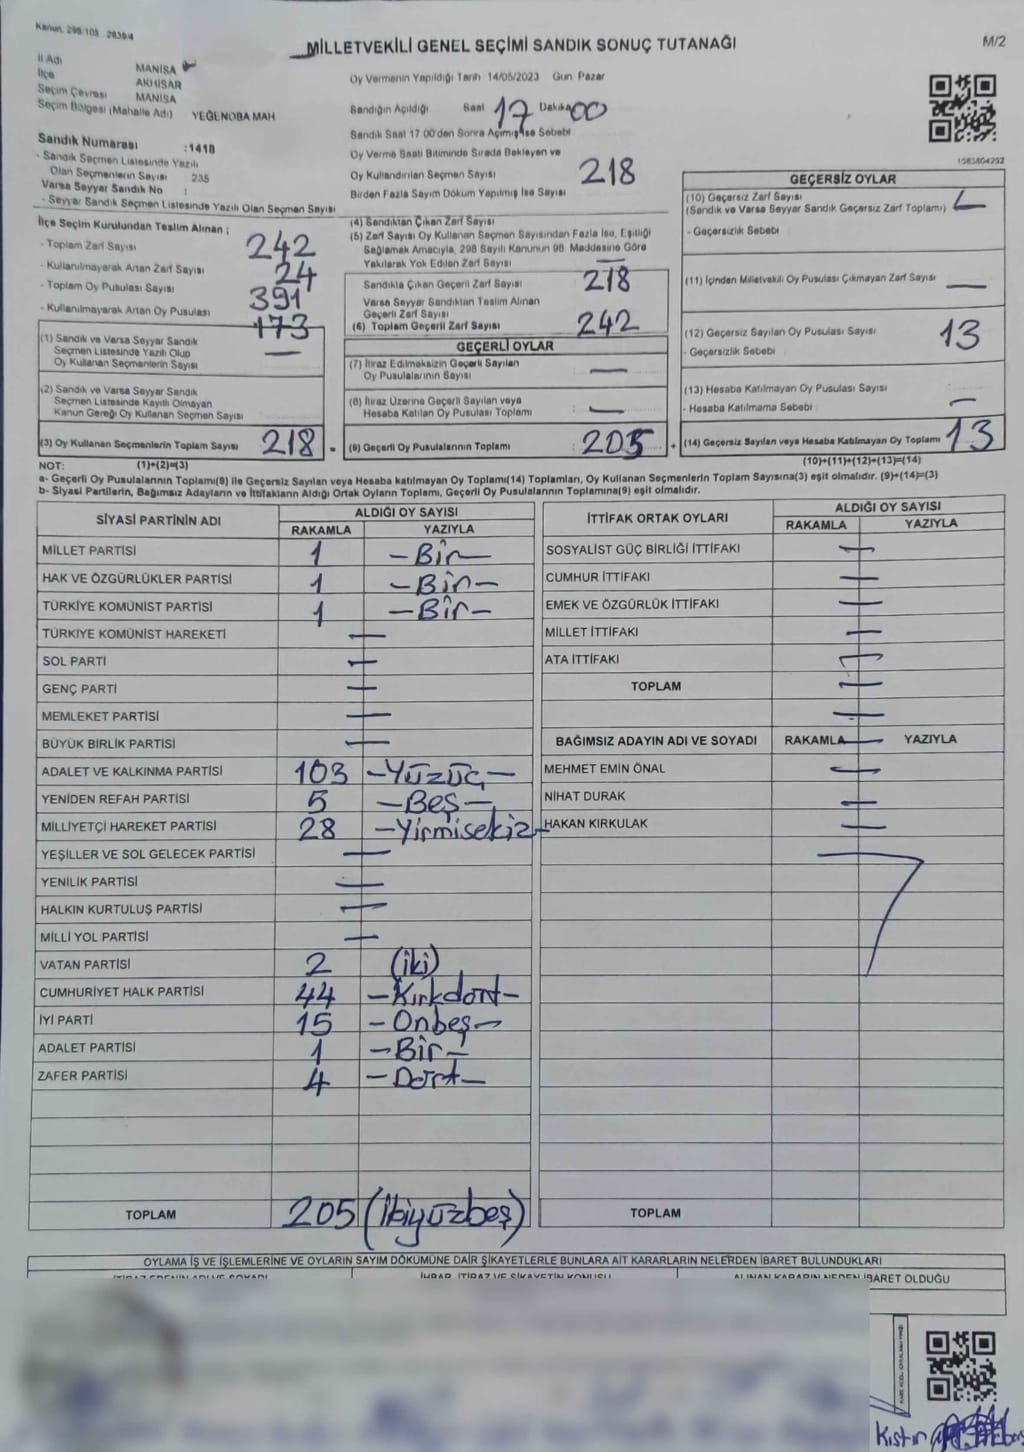 Kanun. 298/103 2839/4
MİLLETVEKİLİ GENEL SEÇİMİ SANDIK SONUÇ TUTANAĞI
M/2
İl Adı MANİSA
İlçe AKHİSAR
Seçim Çevresi MANİSA
Seçim Bölgesi (Mahalle Adı) YEĞENOBA MAH
Sandık Numarası :1418
- Sandık Seçmen Listesinde Yazılı
Olan Seçmenlerin Sayısı 235
Varsa Seyyar Sandık No :
- Seyyar Sandık Seçmen Listesinde Yazılı Olan Seçmen Sayısı
Oy Vermenin Yapıldığı Tarih 14/05/2023 Gun Pazar
Sandığın Açıldığı Saat 17 Dakika 00
Sandık Saat 17 00'den Sonra Açımış İse Sebebi
Oy Verme Saati Bitiminde Sırada Bekleyen ve
Oy Kullandırılan Seçmen Sayısı 218
Birden Fazla Sayım Döküm Yapılmış İse Sayısı
İlçe Seçim Kurulundan Teslim Alınan ;
- Toplam Zarf Sayısı 242
- Kullanılmayarak Artan Zarf Sayısı 24
- Toplam Oy Pusulası Sayısı 391
- Kullanılmayarak Artan Oy Pusulası 173
(1) Sandık ve Varsa Seyyar Sandık
Seçmen Listesinde Yazılı Olup
Oy Kullanan Seçmenlerin Sayısı —
(2) Sandık ve Varsa Seyyar Sandık
Seçmen Listesinde Kayıtlı Olmayan
Kanun Gereği Oy Kullanan Seçmen Sayısı
(3) Oy Kullanan Seçmenlerin Toplam Sayısı 218
(4) Sandıktan Çıkan Zarf Sayısı
(5) Zarf Sayısı Oy Kullanan Seçmen Sayısından Fazla İse, Eşitliği
Sağlamak Amacıyla, 298 Sayılı Kanunun 98. Maddesine Göre
Yakılarak Yok Edilen Zarf Sayısı —
Sandıkta Çıkan Geçerli Zarf Sayısı 218
Varsa Seyyar Sandıktan Teslim Alınan
Geçerli Zarf Sayısı
(6) Toplam Geçerli Zarf Sayısı 242
GEÇERLİ OYLAR
(7) İtiraz Edilmeksizin Geçerli Sayılan
Oy Pusulalarının Sayısı —
(8) İtiraz Üzerine Geçerli Sayılan veya
Hesaba Katılan Oy Pusulası Toplamı —
(9) Geçerli Oy Pusulalarının Toplamı : 205
1583804292
GEÇERSİZ OYLAR
(10) Geçersiz Zarf Sayısı
(Sandık ve Varsa Seyyar Sandık Geçersiz Zarf Toplamı)
- Geçersizlik Sebebi
(11) İçinden Milletvekili Oy Pusulası Çıkmayan Zarf Sayısı —
(12) Geçersiz Sayılan Oy Pusulası Sayısı 13
- Geçersizlik Sebebi
(13) Hesaba Katılmayan Oy Pusulası Sayısı
- Hesaba Katılmama Sebebi —
(14) Geçersiz Sayılan veya Hesaba Katılmayan Oy Toplamı 13
NOT: (1)+(2)=(3) (10)+(11)+(12)+(13)=(14)
a- Geçerli Oy Pusulalarının Toplamı(9) ile Geçersiz Sayılan veya Hesaba katılmayan Oy Toplamı(14) Toplamları, Oy Kullanan Seçmenlerin Toplam Sayısına(3) eşit olmalıdır. (9)+(14)=(3)
b- Siyasi Partilerin, Bağımsız Adayların ve İttifakların Aldığı Ortak Oyların Toplamı, Geçerli Oy Pusulalarının Toplamına(9) eşit olmalıdır.
SİYASİ PARTİNİN ADI ALDIĞI OY SAYISI
RAKAMLA YAZIYLA
MİLLET PARTİSİ 1 -Bir-
HAK VE ÖZGÜRLÜKLER PARTİSİ 1 -Bir-
TÜRKİYE KOMÜNİST PARTİSİ 1 -Bir-
TÜRKİYE KOMÜNİST HAREKETİ —
SOL PARTİ —
GENÇ PARTİ —
MEMLEKET PARTİSİ —
BÜYÜK BİRLİK PARTİSİ —
ADALET VE KALKINMA PARTİSİ 103 -Yüzüç-
YENİDEN REFAH PARTİSİ 5 -Beş-
MİLLİYETÇİ HAREKET PARTİSİ 28 -Yirmisekiz-
YEŞİLLER VE SOL GELECEK PARTİSİ —
YENİLİK PARTİSİ —
HALKIN KURTULUŞ PARTİSİ —
MİLLİ YOL PARTİSİ —
VATAN PARTİSİ 2 (iki)
CUMHURİYET HALK PARTİSİ 44 -Kırkdört-
İYİ PARTİ 15 -Onbeş-
ADALET PARTİSİ 1 -Bir-
ZAFER PARTİSİ 4 -Dört-
TOPLAM 205 (ikiyüzbeş)
İTTİFAK ORTAK OYLARI ALDIĞI OY SAYISI
RAKAMLA YAZIYLA
SOSYALİST GÜÇ BİRLİĞİ İTTİFAKI —
CUMHUR İTTİFAKI —
EMEK VE ÖZGÜRLÜK İTTİFAKI —
MİLLET İTTİFAKI —
ATA İTTİFAKI —
TOPLAM —
BAĞIMSIZ ADAYIN ADI VE SOYADI RAKAMLA YAZIYLA
MEHMET EMİN ÖNAL —
NİHAT DURAK —
HAKAN KIRKULAK —
TOPLAM
OYLAMA İŞ VE İŞLEMLERİNE VE OYLARIN SAYIM DÖKÜMÜNE DAİR ŞİKAYETLERLE BUNLARA AİT KARARLARIN NELERDEN İBARET BULUNDUKLARI
İTİRAZ EDENİN ADI VE SOYADI İHBAR, İTİRAZ VE ŞİKAYETİN KONUSU ALINAN KARARIN NEDEN İBARET OLDUĞU